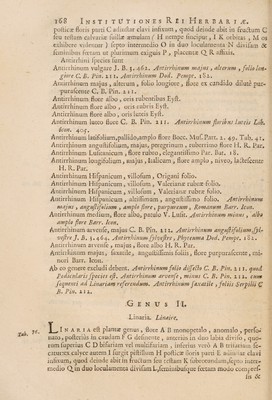 168 INSTITUTIONES REI HERBARIÆ.
posticæ floris parti C adfultur clavi instar, quod deinde abit in fructum C
seu testam calvariæ similem ( si rempe suscipiat, ) K orbitas, M os
exhibere volentur ) septo intermedio O in duo loculamenta N divisum &
seminibus fœtum ut plurimum exiguis P, placentæ Q R affixis.
Antirrhini species sunt
Antirrhinum vulgare J. B. 3. 462. Antirrhinum majus, alterum, folio lon-
giore C. B. Pin. 211. Antirrhinum Dod. Pempt. 182.
Antirrhinum majus, alterum, folio longiore, flore ex candido dilutè pur-
purascente C. B. Pin. 211.
Antirrhinum flore albo, oris rubentibus Eyst.
Antirrhinum flore albo, oris rubris Eyst.
Antirrhinum flore albo, oris luteis Eyst.
Antirrhinum luteo flore C. B. Pin. 211. Antirrhinum floribus luteis Lob.
Icon. 405.
Antirrhinum latifolium, pallido, amplo flore Bocc. Mus. Part. 2. 49. Tab. 41.
Antirrhinum angustifolium, majus, peregrinum, ruberrimo flore H. R. Par.
Antirrhinum Lusitanicum, flore rubro, elegantissimo Par. Bat. 18.
Antirrhinum longifolium, majus, Italicum, flore amplo, niveo, lactescente
H. R. Par.
Antirrhinum Hispanicum, villosum, Origani folio.
Antirrhinum Hispanicum, villosum, Valerianæ rubræ folio.
Antirrhinum Hispanicum, villosum, Valerianæ rubræ folio.
Antirrhinum Hispanicum, altissimum, angustissimo folio. Antirrhinum
majus, angustifolium, amplo flore, purpureum, Romanum Barr. Icon.
Antirrhinum medium, flore albo, patulo V. Lusit. Antirrhinum minus, albo
amplo flore Barr. Icon.
Antirrhinum arvense, majus C. B. Pin. 212. Antirrhinum angustifolium, syl-
vestre J. B. 3. 464. Antirrhinum sylvestre, Phyteuma Dod. Pempt. 182.
Antirrhinum arvense, majus, flore albo H. R. Par.
Antirrhinum majus, saxatile, angustissimis foliis, flore purpurascente, mi-
nori Barr. Icon.
Ab eo genere excludi debent, Antirrhinum folio dissecto C. B. Pin. 211. quod
Pedicularis species est. Antirrhinum arvense, minus C. B. Pin. 212. cum
sequenti ad Linariam referendum. Antirrhinum saxatile, foliis Serpilli C.
B. Pin. 212.
GENUS II.
Linaria. Linaire.
Tab. 76.
LINARIA est plantæ genus, flore A B monopetalo, anomalo, perso-
nato, posterius in caudam F G desinente, anterius in duo labia diviso, quo-
rum superius C D bifariam vel multifariam, inferius verò A B trifariam se-